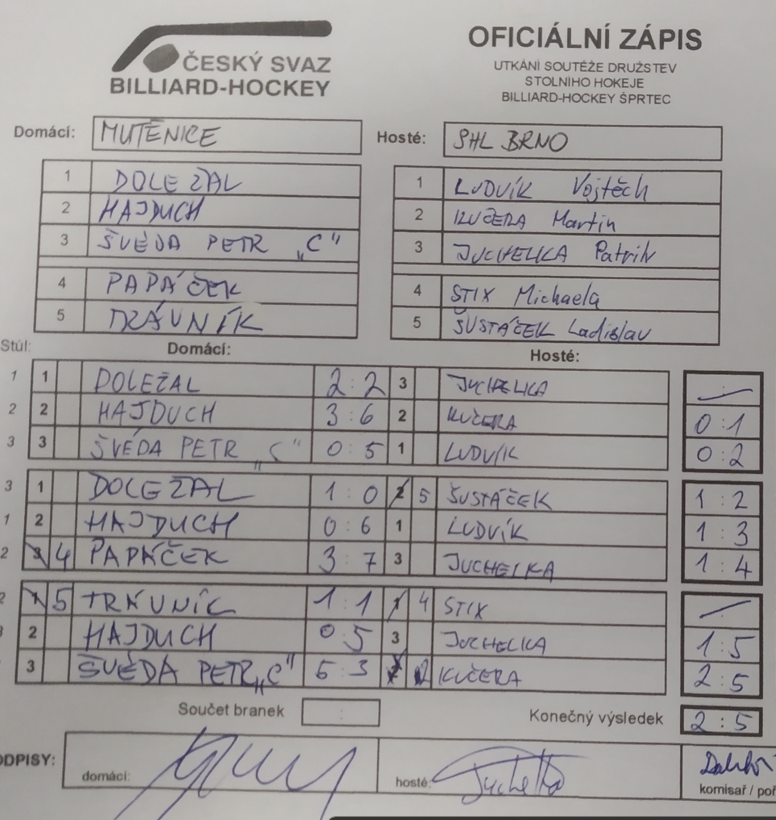 ČESKÝ SVAZ
BILLIARD-HOCKEY
OFICIÁLNÍ ZÁPIS
UTKÁNÍ SOUTĚŽE DRUŽSTEV
STOLNÍHO HOKEJE
BILLIARD-HOCKEY ŠPRTEC
Domácí: MUTĚNICE Hosté: SHL BRNO
1 DOLEŽAL 1 LUDVÍK Vojtěch
2 HAJDUCH 2 KUČERA Martin
3 ŠVÉDA PETR „C“ 3 JUCHELKA Patrik
4 PAPÁČEK 4 STIX Michaela
5 TRÁVNÍK 5 ŠUSTÁČEK Ladislav
Stůl: Domácí: Hosté:
1 1 DOLEŽAL 2:2 3 JUCHELKA
2 2 HAJDUCH 3:6 2 KUČERA 0:1
3 3 ŠVÉDA PETR „C“ 0:5 1 LUDVÍK 0:2
3 1 DOLEŽAL 1:0 2 5 ŠUSTÁČEK 1:2
1 2 HAJDUCH 0:6 1 LUDVÍK 1:3
2 3 4 PAPÁČEK 3:7 3 JUCHELKA 1:4
2 1 5 TRÁVNÍK 1:1 1 4 STIX
3 2 HAJDUCH 0:5 3 JUCHELKA 1:5
3 ŠVÉDA PETR „C“ 5:3 2 KUČERA 2:5
Součet branek : Konečný výsledek 2:5
ODPISY: domácí: hosté: Juchelka komisař / poř